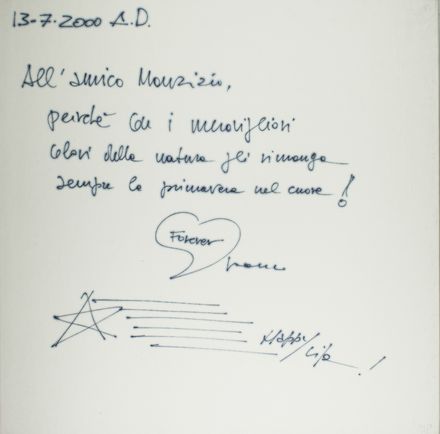 13-7-2000 A.D.
All'amico Maurizio,
perchè con i meravigliosi
colori della natura gli rimanga
sempre la primavera nel cuore!
Forever
Happy